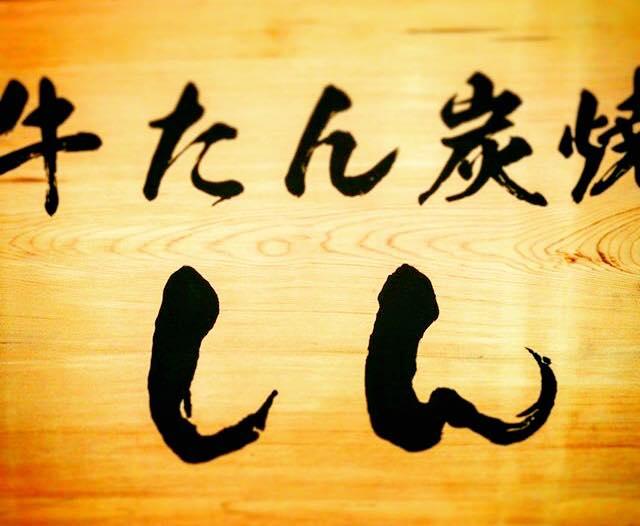 牛たん炭焼
しん